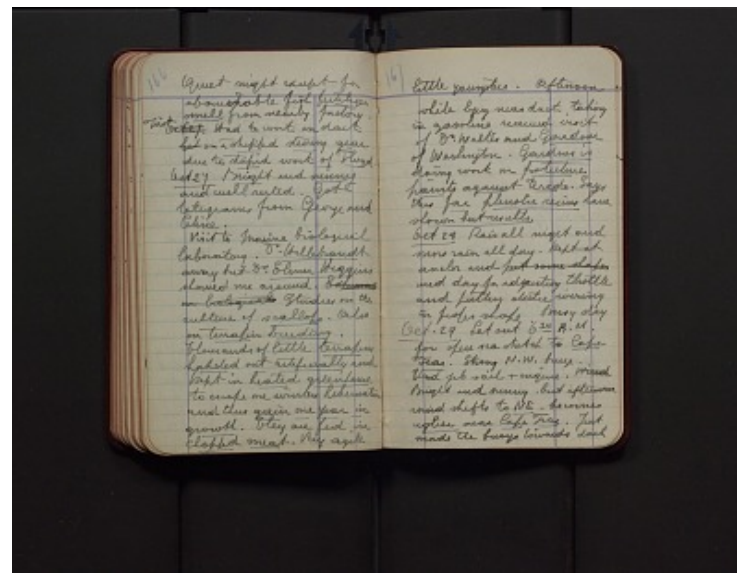 166
Quiet night except for
abominable fish fertilizer
smell from nearby factory.
Had to work on dock
for on a shipped
due to work of
Oct 27 Bright and sunny
and well rested. Got 2
telegrams from George and
Visit to marine biological
laboratory. Dr.
away but Dr. Elmer Higgins
showed me around.
Studies on the
culture of scallop. Also
on terrapin breeding.
Thousands of little terrapin
hatched out artificially and
kept in heated greenhouse
to escape one winters hibernation
and thus gain one year in
growth. They are fed on
chopped meat. Very agile
161
little youngsters. Afternoon
while lying near dock taking
in gasoline received visit
of Dr. Walter and Gardner
of Washington. Gardner is
doing work on protective
paints against teredo. Says
thus far phenolic resins have
shown best results
Oct 29 Rain all night and
more rain all day. Kept at
anchor and
used day for adjusting throttle
and putting electric wiring
in proper shape. Busy day
Oct. 29 Set out A.M.
for open sea stretch to Cape
Fear. Strong N.W. breeze.
Used jib sail + engine. Wind
Bright and sunny. but afternoon
wind shifts to NE. becomes
near Cape Fear. Just
made the buoys towards dark